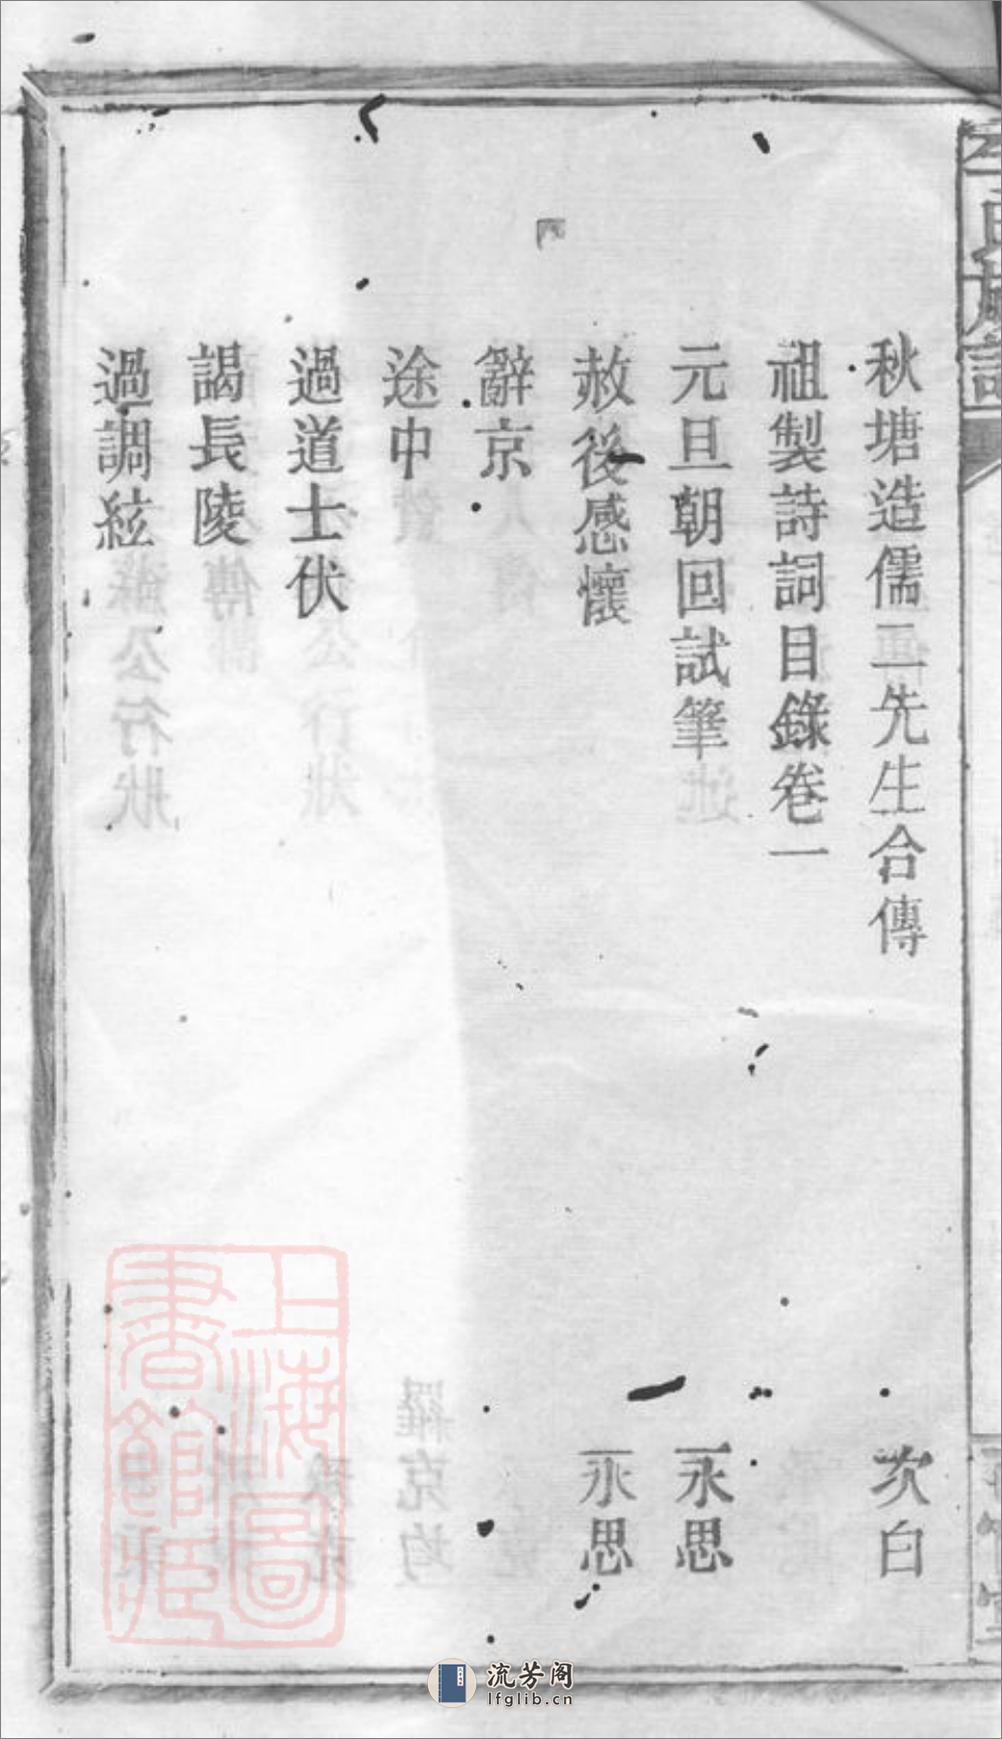 秋塘造儒二先生合傳 次白
祖製詩詞目錄卷一
元旦朝回試筆 永思
赦後感懷 永思
辭京
途中
過道士伏
謁長陵
過調絃
上海圖書館藏
流芳阁
lfglib.cn